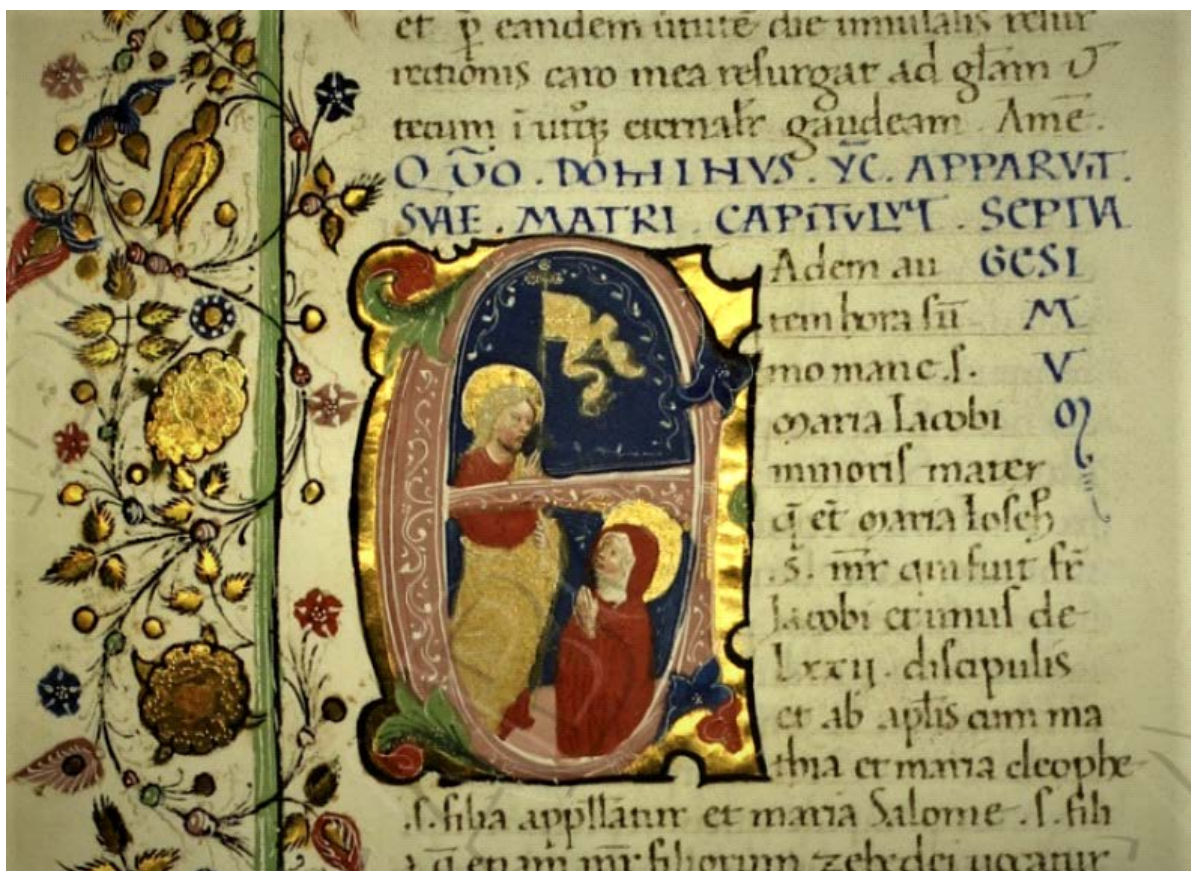 et p̄ eandem uirtutē die
rectionis caro mea resurgat ad gl̄am
tecum ī utroq; eternalr̄ gaudeam. Amē.
QŪO. DOMINVS. YC̄. APPARVIT.
SVAE. MATRI CAPITVLVM. SEPTVA
Adem au GESI
tem hora sū M
mo mane.s. V
maria Iacobi M
minoris mater
q̄ et maria Ioseph
.s. mr̄ qui fuit fr̄
Iacobi et unus de
Lxxij. discipulis
et ab apl̄is cum ma
thia et maria cleophe
.s. filia appllatur et maria Salome. s. fili
a q̄ etiam mr̄ filiorum zebedei uocatur